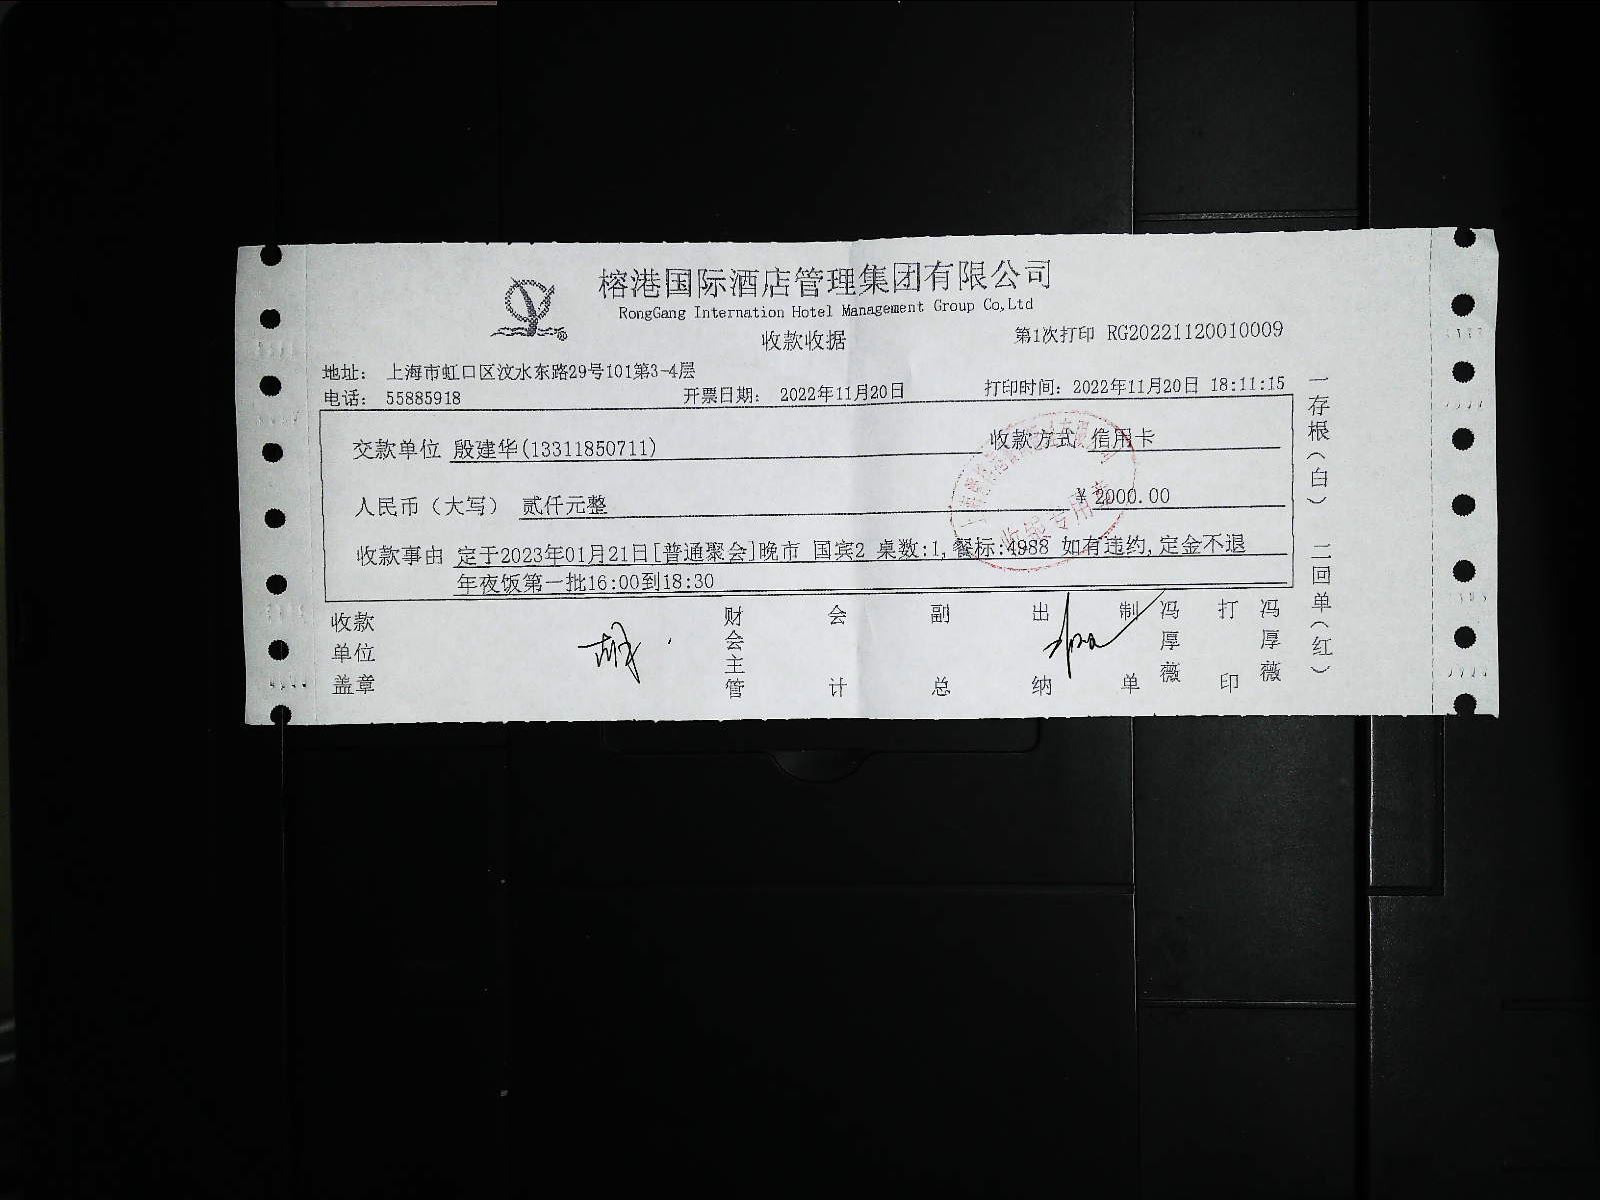 榕港国际酒店管理集团有限公司
RongGang Internation Hotel Management Group Co,Ltd
收款收据
第1次打印 RG20221120010009
地址： 上海市虹口区汶水东路29号101第3-4层
电话： 55885918 开票日期： 2022年11月20日 打印时间：2022年11月20日 18:11:15
交款单位 殷建华(13311850711) 收款方式 信用卡
人民币（大写） 贰仟元整 ￥2000.00
收款事由 定于2023年01月21日[普通聚会]晚市 国宾2 桌数:1,餐标:4988 如有违约,定金不退
年夜饭第一批16:00到18:30
收款单位盖章
财会主管
会计
副总
出纳
制单
冯厚薇
打印
冯厚薇
一存根（白） 二回单（红）
收银专用章